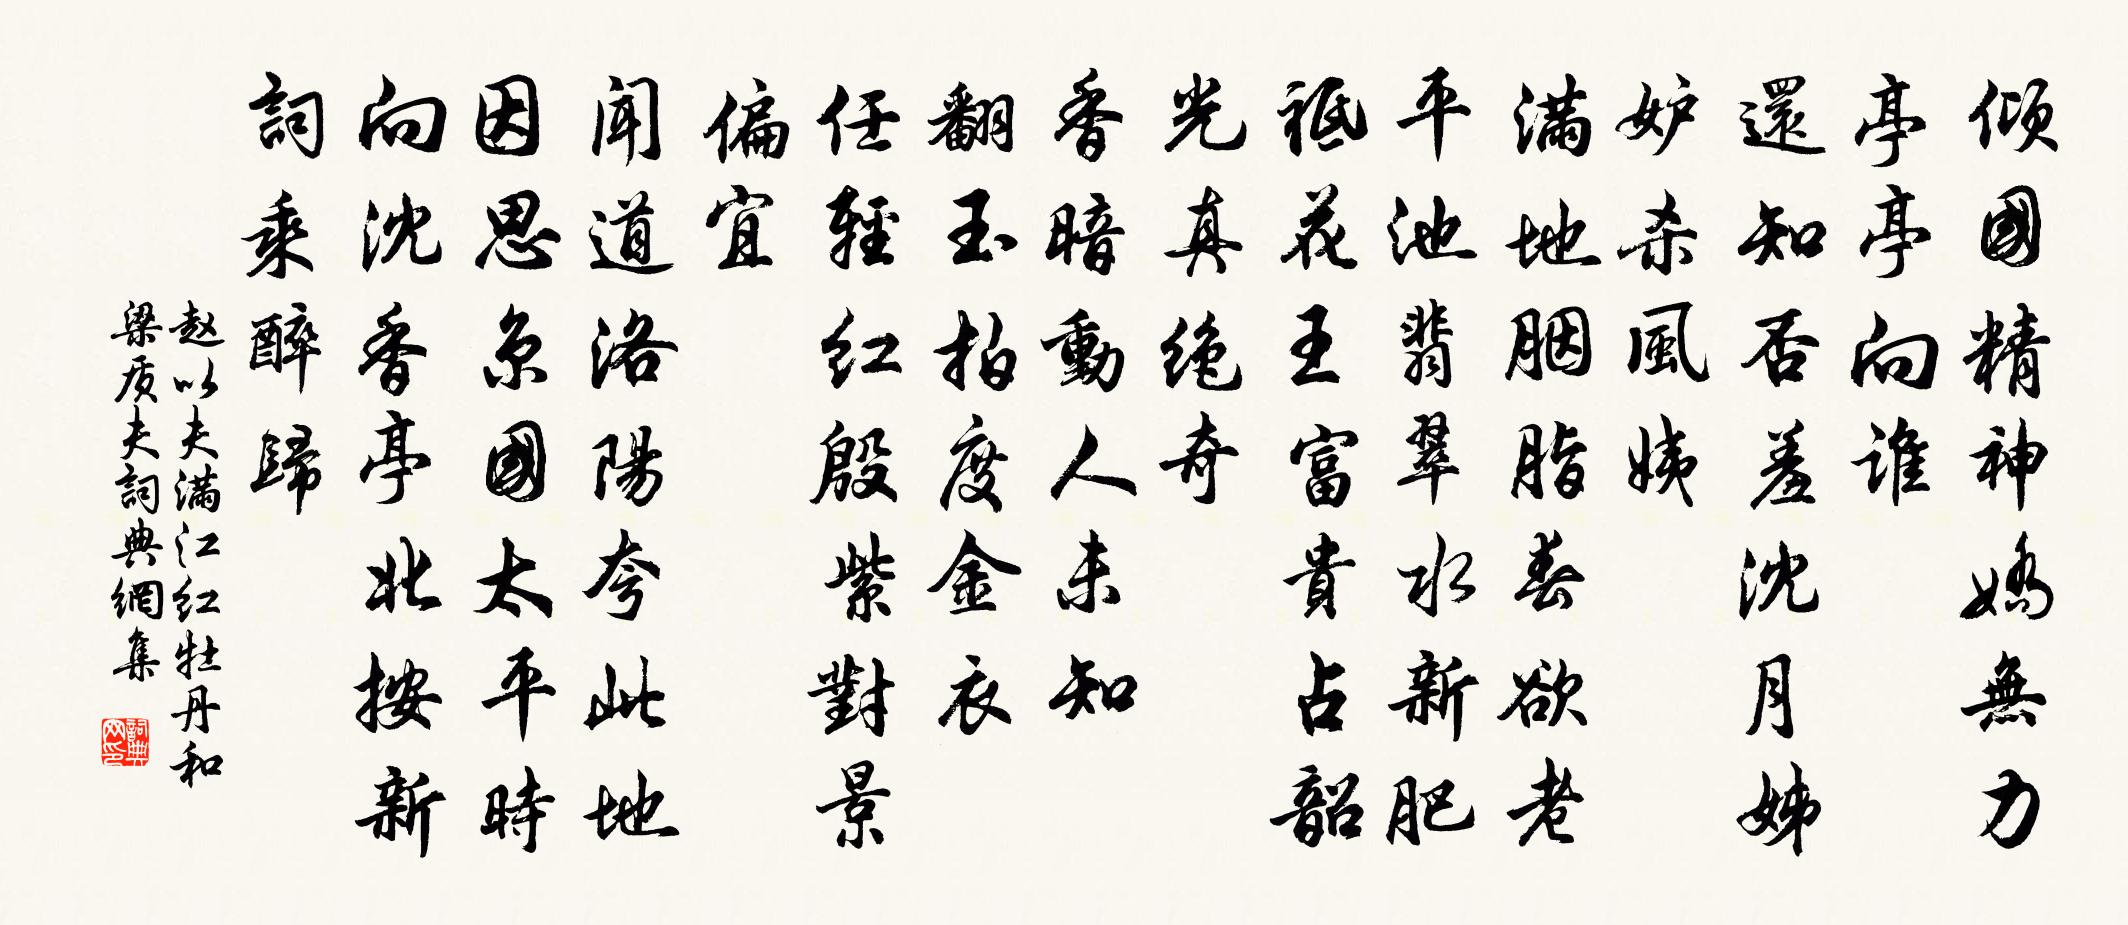 倾國精神嬌無力
亭亭向谁
還知否羞沈月姊
妒杀風姨
满地胭脂春欲老
平池翡翠水新肥
祗花王富貴占韶
光真绝奇
香暗動人未知
翻玉拍度金衣
任輕红殷紫對景
偏宜
闻道洛陽夸此地
因思京國太平時
向沈香亭北按新
詞乘醉歸
赵以夫满江红牡丹和
梁质夫詞典網集
詞典
网印